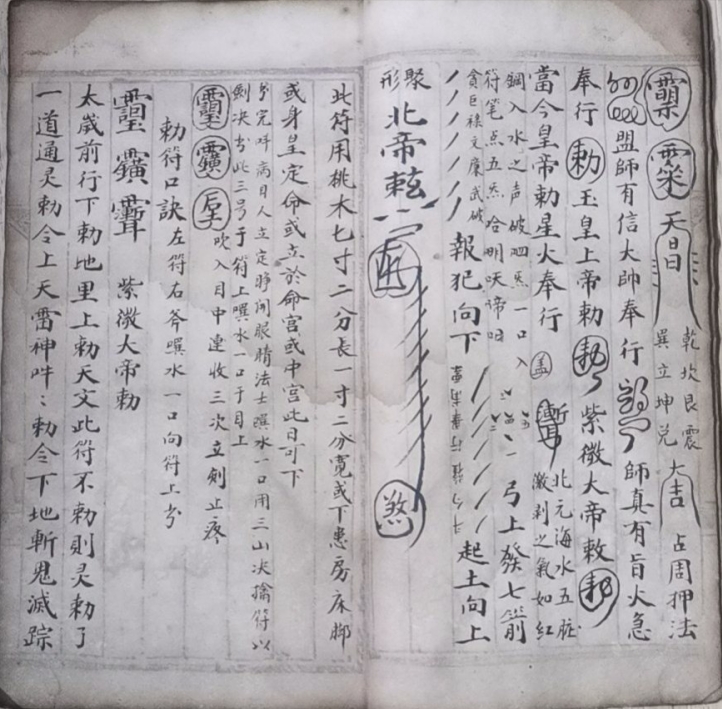 天日日 乾坎艮震 巽立坤兑 大吉 占周押法
盟師有信大帥奉行 師真有旨火急
奉行 勅 玉皇上帝勅 紫微大帝敕
當今皇帝勅星火奉行 蓋 北元海水五脏 瀲剥之氣如紅
鋼入水之声 破泗炁一口入 弓上發七箭
符笔点五炁
貪巨禄文廉武破 報犯向下 起土向上
聚形 北帝 煞
此符用桃木七寸二分長一寸二分寬或下患房床脚
或身皇定命或立於命宫或中宫此日可下
兮完吽病目人立定睁開眼睛法士噀水一口用三山决擒符以
劍决書此三号于符上噀水一口于目上
吹入目中連收三次立刻止疼
勅符口訣 左符右斧噀水一口向符上兮
紫微大帝勅
太歲前行下勅地里上勅天文此符不勅則灵勅了
一道通灵勅令上天雷神吽:勅令下地斬鬼滅踪